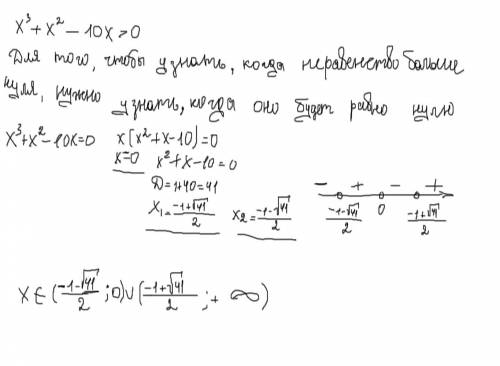 x³ + x² - 10x > 0
Для того, чтобы узнать, когда неравенство больше
нуля, нужно узнать, когда оно будет равно нулю
x³+x²-10x=0 x(x²+x-10)=0
x=0 x²+x-10=0
D=1+40=41
x₁=(-1+√41)/2 x₂=(-1-√41)/2
- + - +
(-1-√41)/2 0 (-1+√41)/2
x∈((-1-√41)/2;0)∪((-1+√41)/2;+∞)